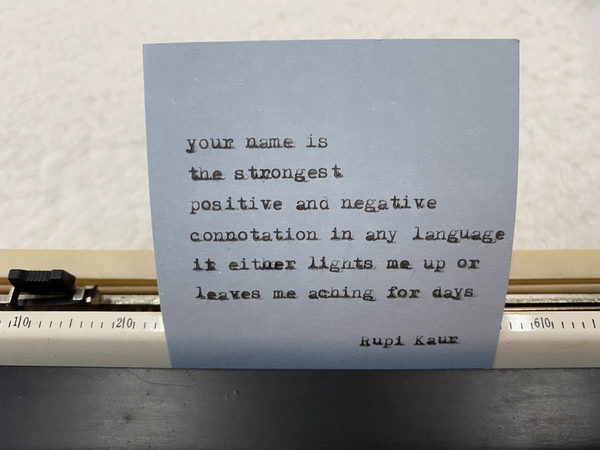 your name is
the strongest
positive and negative
connotation in any language
it either lights me up or
leaves me aching for days
Rupi Kaur
10 20 60